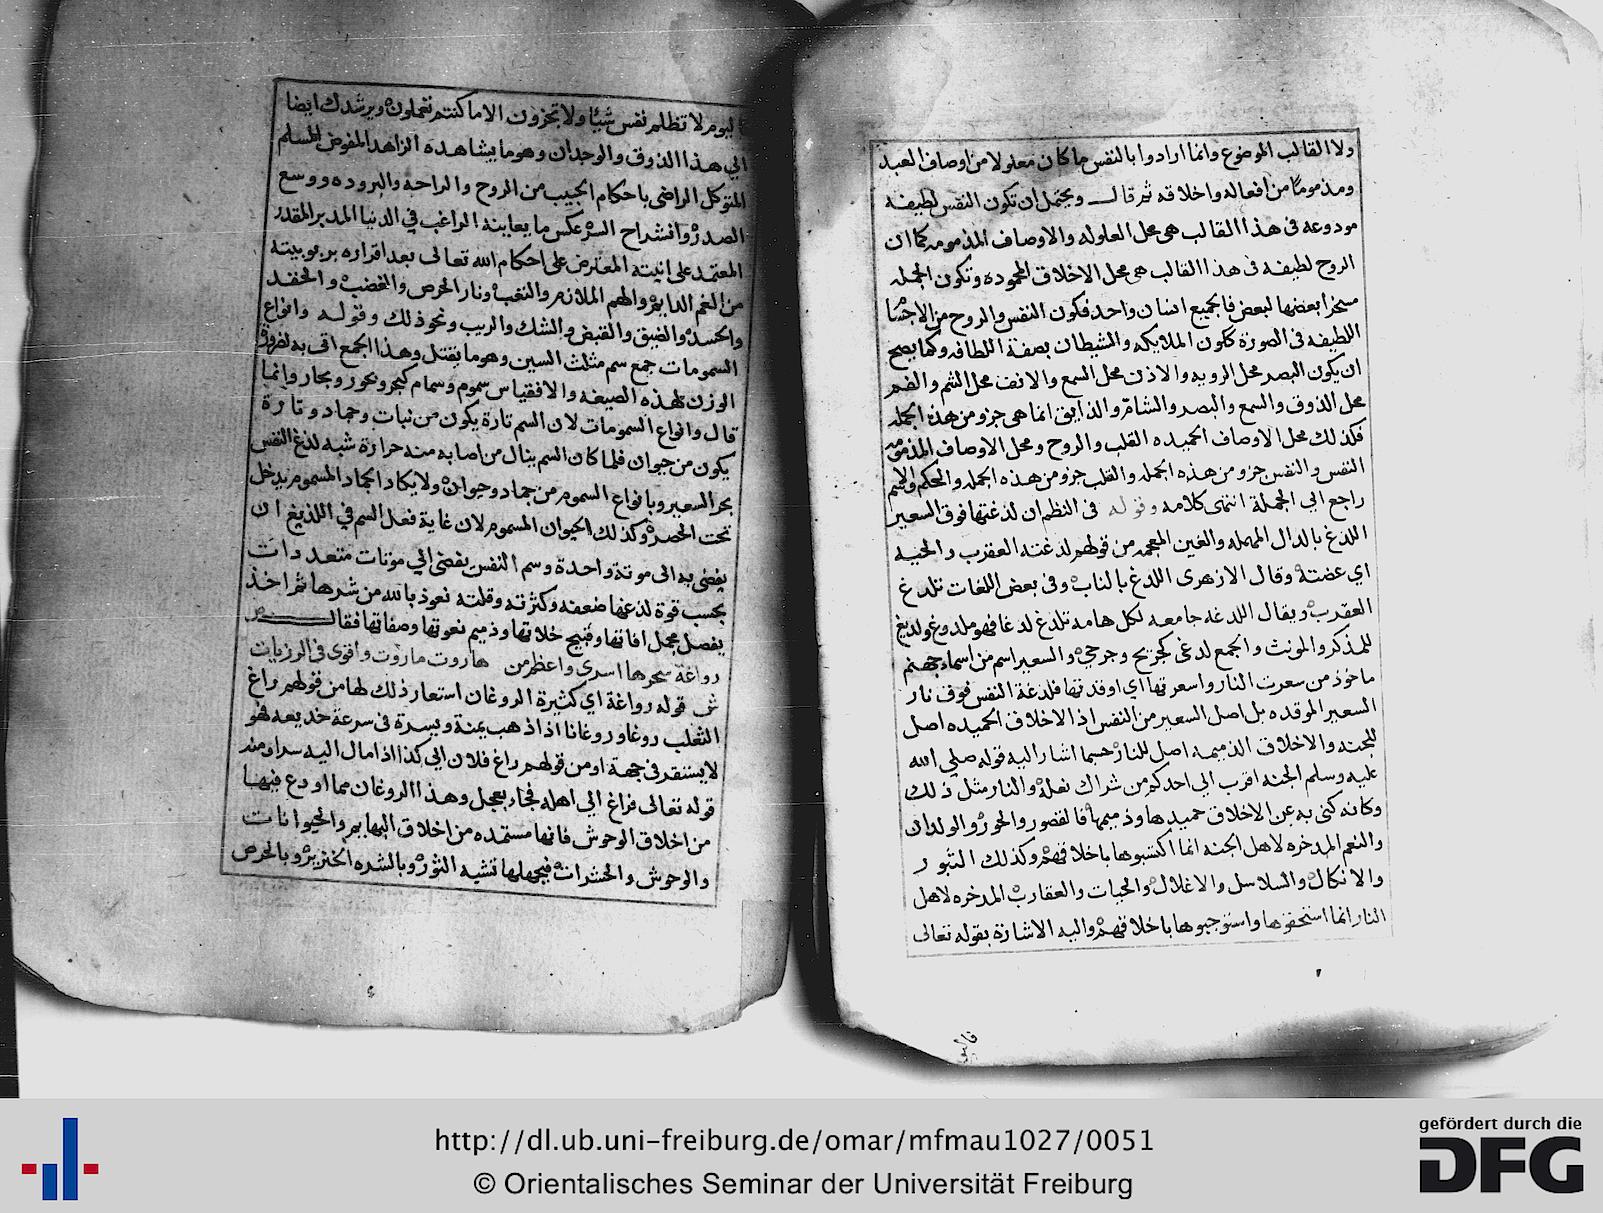 ولا القالب الموضوع وانما ارادوا بالنفس ما كان معلولا من اوصاف العبد
ومذموما من افعاله واخلاقه ثم قال ويحتمل ان تكون النفس لطيفه
مودوعه فى هذا القالب هى محل العلوله والاوصاف المذمومه كما ان
الروح لطيفه فى هذا القالب هى محل الاخلاق المحموده وتكون الجمله
مسخرا بعضها لبعض فالجميع انسان واحد فكون النفس والروح من الاجسا
اللطيفه فى الصورة ككون الملايكه والشيطان بصفة اللطافه وكما يصح
ان يكون البصر محل الرويه والاذن محل السمع والانف محل الشم والفم
محل الذوق والسمع والبصر والشام والذايق انما هى جزو من هذه الجمله
فكذلك محل الاوصاف الحميده القلب والروح ومحل الاوصاف المذمومه
النفس والنفس جزو من هذه الجمله والقلب جزو من هذه الجمله والحكم والاسم
راجع الى الجملة انتهى كلامه وقوله فى النظم ان لدغتها فوق السعير
اللدغ بالدال المهمله والغين المعجمه من قولهم لدغته العقرب والحيه
اى عضته وقال الازهرى اللدغ بالناب وفى بعض اللغات تلدغ
العقرب ويقال اللدغه جامعه لكل هامه تلدغ لدغا فهو ملدوغ ولديغ
للمذكر والمونث والجمع لدغى كجريح وجرحى والسعير اسم من اسماء جهنم
ماخوذ من سعرت النار واسعرتها اى اوقدتها فلدغة النفس فوق نار
السعير الموقده بل اصل السعير من النفس اذ الاخلاق الحميده اصل
للجنه والاخلاق الذميمه اصل للنار حسبما اشار اليه قوله صلى الله
عليه وسلم الجنه اقرب الى احدكم من شراك نعله والنار مثل ذلك
وكانه كنى به عن الاخلاق حميدها وذميمها فالقصور والحور والولدان
والنعم المدخره لاهل الجنه انما اكتسبوها باخلاقهم وكذلك الثبور
والانكال والسلاسل والاغلال والحيات والعقارب المدخره لاهل
النار انما استحقوها واستوجبوها باخلاقهم واليه الاشارة بقوله تعالى
فاليوم
فاليوم لا تظلم نفس شيئا ولا تجزون الا ما كنتم تعملون ويرشدك ايضا
الى هذا الذوق والوجدان وهو ما يشاهده الزاهد المفوض المسلم
المتوكل الراضى باحكام الحبيب من الروح والراحه والبروده ووسع
الصدر وانشراح السر عكس ما يعاينه الراغب فى الدنيا المدبر المقدر
المعتمد على انيته المعترض على احكام الله تعالى بعد اقراره بربوبيته
من الغم الدايم والهم الملازم والتعب ونار الحرص والغضب والحقد
والحسد والضيق والقبض والشك والريب ونحو ذلك وقوله وانواع
السمومات جمع سم مثلث السين وهو ما يقتل وهذا الجمع اتى به لضرورة
الوزن لهذه الصيغه والا فقياس سموم وسمام كبحر وبحور وبحار وانما
قال وانواع السمومات لان السم تارة يكون من نبات وجماد وتارة
يكون من حيوان فلما كان السم ينال من اصابه منه حرارة شبه لدغ النفس
بحر السعير وبانواع السموم من جماد وحيوان ولا يكاد الجاد المسموم يدخل
تحت الحصر وكذلك الحيوان المسموم لان غاية فعل السم فى اللديغ ان
يفضى به الى موتة واحدة وسم النفس يفضى الى موتات متعددات
بحسب قوة لدغها ضعفه وكثرته وقلته نعوذ بالله من شرها ثم اخذ
يفصل مجمل افاتها وقبيح خلاتها وذميم نعوتها وصفاتها فقال ص
رواغة سحرها اسرى واعظم من هاروت ماروت واقوى فى الرزيات
ش قوله رواغة اى كثيرة الروغان استعار ذلك لها من قولهم راغ
الثعلب روغا وروغانا اذا ذهب يمنة ويسرة فى سرعة خديعه فهو
لا يستقر فى جهة او من قولهم راغ فلان الى كذا اذا مال اليه سرا ومنه
قوله تعالى فراغ الى اهله فجاء بعجل وهذا الروغان مما اودع فيها
من اخلاق الوحوش فانها مستمده من اخلاق البهايم والحيوانات
والوحوش والحشرات فبجهلها تشبه الثور وبالشره الخنزير وبالحرص
http://dl.ub.uni-freiburg.de/omar/mfmau1027/0051
© Orientalisches Seminar der Universität Freiburg
gefördert durch die
DFG